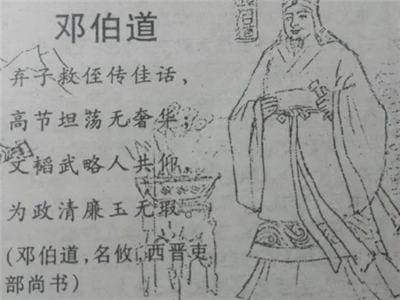 邓伯道
弃子救侄传佳话，
高节坦荡无奢华；
文韬武略人共仰，
为政清廉玉无瑕
(邓伯道，名攸，西晋吏
部尚书)
邓伯道